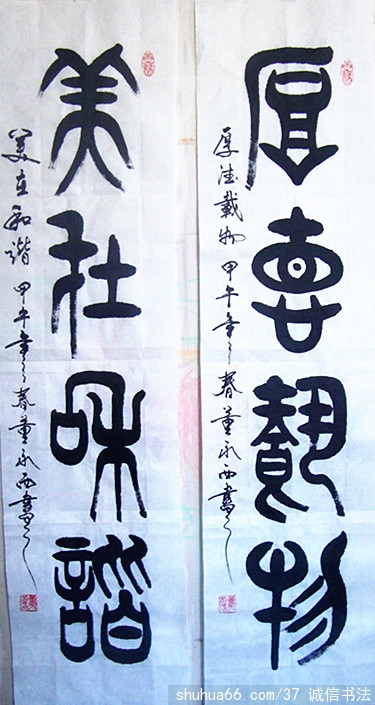 厚悳載物
厚德載物 甲午年之春董永西書之
美在和諧
美在和谐 甲午年之春董永西書之
shuhua66.com/37 诚信书法